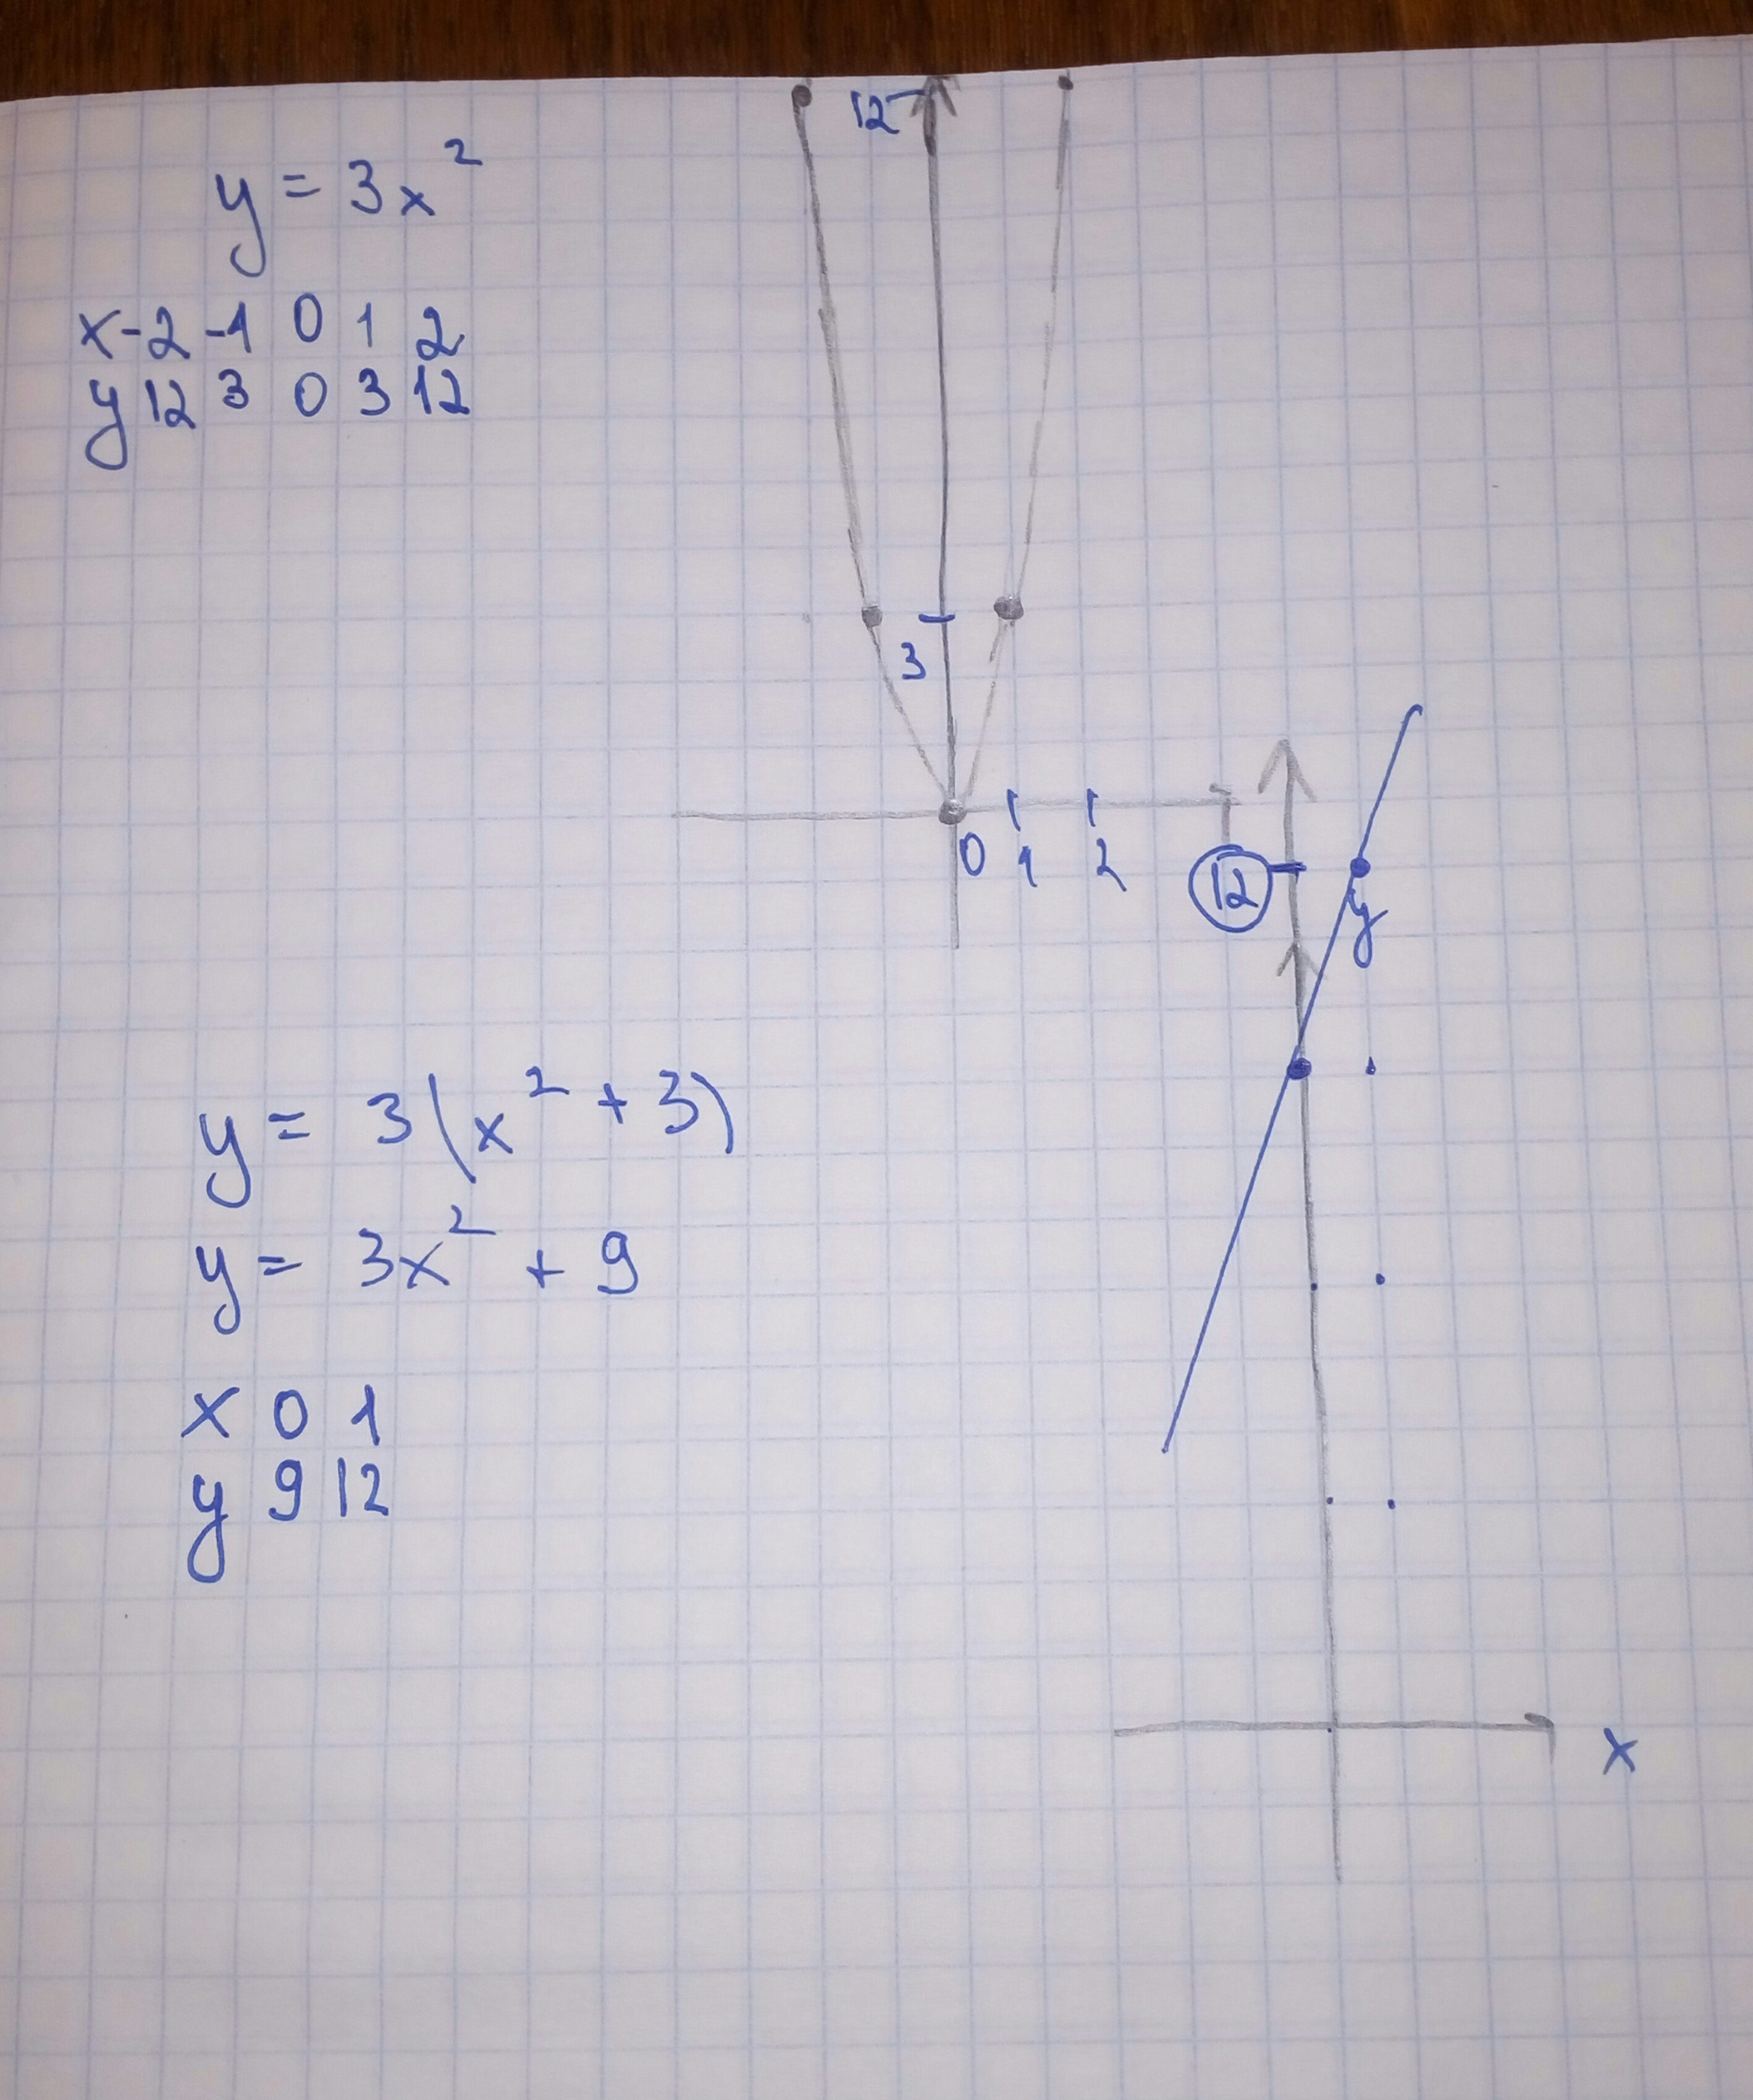 y = 3x²
x -2 -1 0 1 2
y 12 3 0 3 12
12
3
0 1 2
12
y
y = 3(x² + 3)
y = 3x² + 9
x 0 1
y 9 12
x